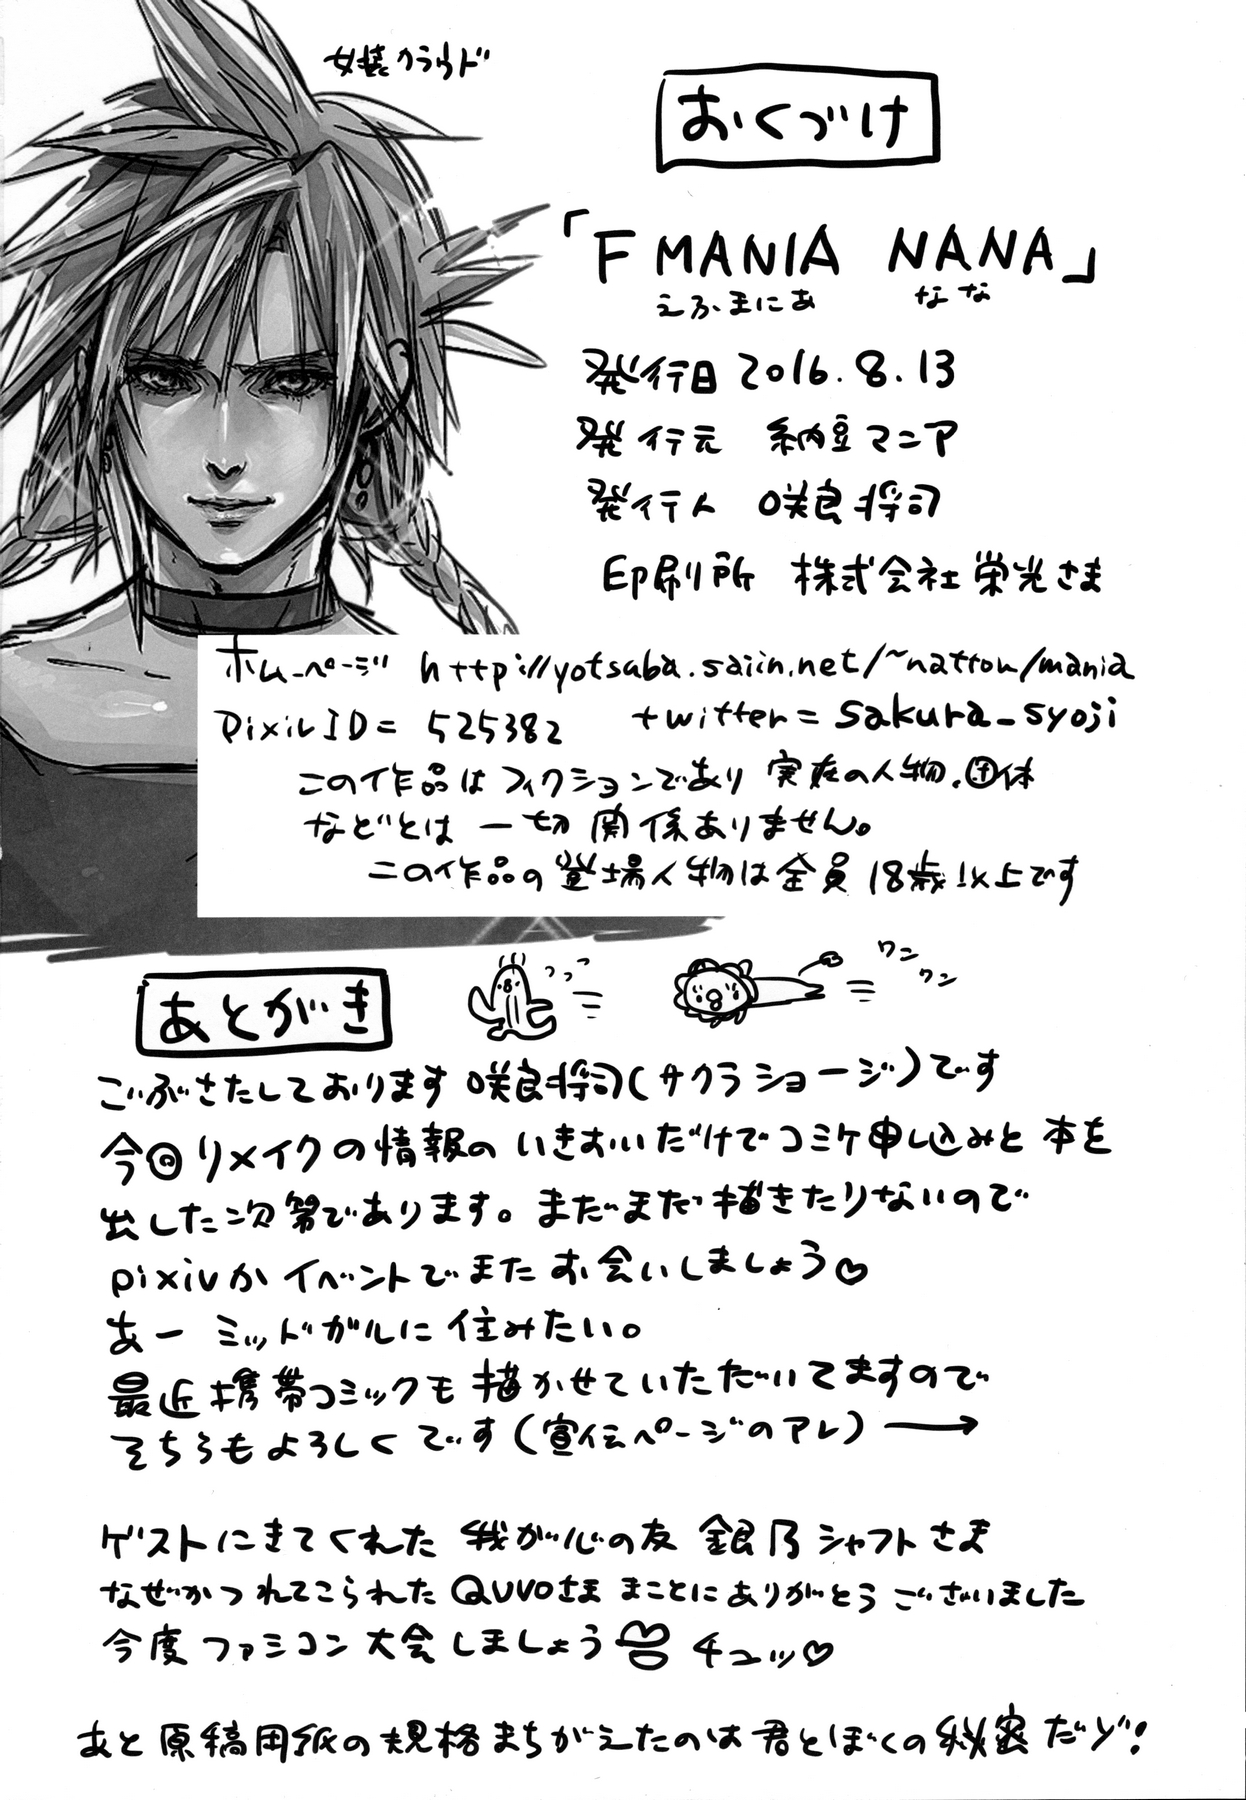 女装クラウド
おくづけ
「F MANIA NANA」
えふまにあ なな
発行日 2016.8.13
発行元 納豆マニア
発行人 咲良将司
印刷所 株式会社栄光さま
ホームページ http://yotsuba.saiin.net/~nattou/mania
pixiv ID = 525382 twitter = sakura_syoji
この作品はフィクションであり 実在の人物、団体
などとは 一切関係ありません。
この作品の登場人物は全員18歳以上です
あとがき
つっつ
ワン
ワン
ごぶさたしております 咲良将司(サクラショージ)です
今回リメイクの情報の いきおいだけでコミケ申し込みと 本を
出した次第であります。まだまだ描きたりないので
pixivか イベントでまた お会いしましょう♡
あー ミッドガルに 住みたい。
最近携帯コミックも 描かせていただいてますので
そちらもよろしくです(宣伝ページのアレ) →
ゲストにきてくれた 我が心の友 銀乃シャフトさま
なぜかつれてこられた QUVOさま まことにありがとうございました
今度 ファミコン大会しましょう チュッ♡
あと 原稿用紙の規格まちがえたのは 君とぼくの秘密だゾ!